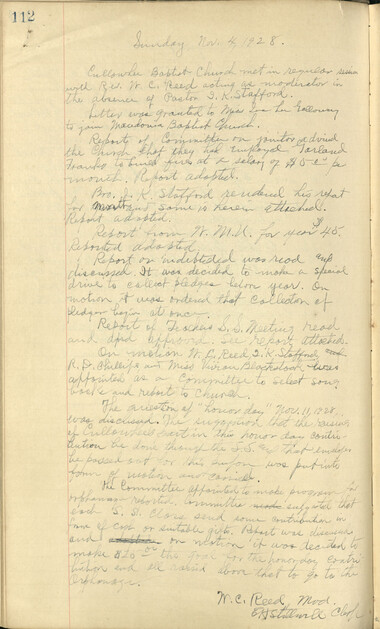 112
Sunday Nov. 4, 1928.
Cullowhee Baptist Church met in regular
with Rev. W. C. Reed acting as moderator in
the absence of Pastor I. K. Stafford.
Letter was granted to Miss
to join Macedonia Baptist Church.
Report of Committee on janitor advised
the Church that they had employed
to build fires at a salary of $5 per
month. Report adopted.
Bro. I. K. Stafford rendered his report
for and same is herein attached.
Report adopted.
Report from W. M. U. for year $45.
Reported adopted.
Report on was read and
discussed. It was decided to make a special
drive to collect pledges before year. On
motion it was ordered that collection of
pledges begin at once.
Report of Teachers S. S. Meeting read
and approved. see report attached.
On motion W. C. Reed, I. K. Stafford and
R. D. Phillips and Miss were
appointed as a Committee to select song
books and report to Church.
The question of "honor day" Nov. 11, 1928,
was discussed. The suggestion that the raising
of Cullowhee's part in this honor day contri-
bution be done through the S. S. and that envelopes
be passed out for this purpose was put into
form of motion and carried.
The Committee appointed to make program for
orphanage reported. Committee suggested that
each S. S. Class send some contribution in
form of cash or suitable gifts. Report was discussed
and on motion it was decided to
make $20 the goal for the honor day contri-
bution and all raised above that to go to the
Orphanage.
W. C. Reed, Mod.
Stillwell Clerk